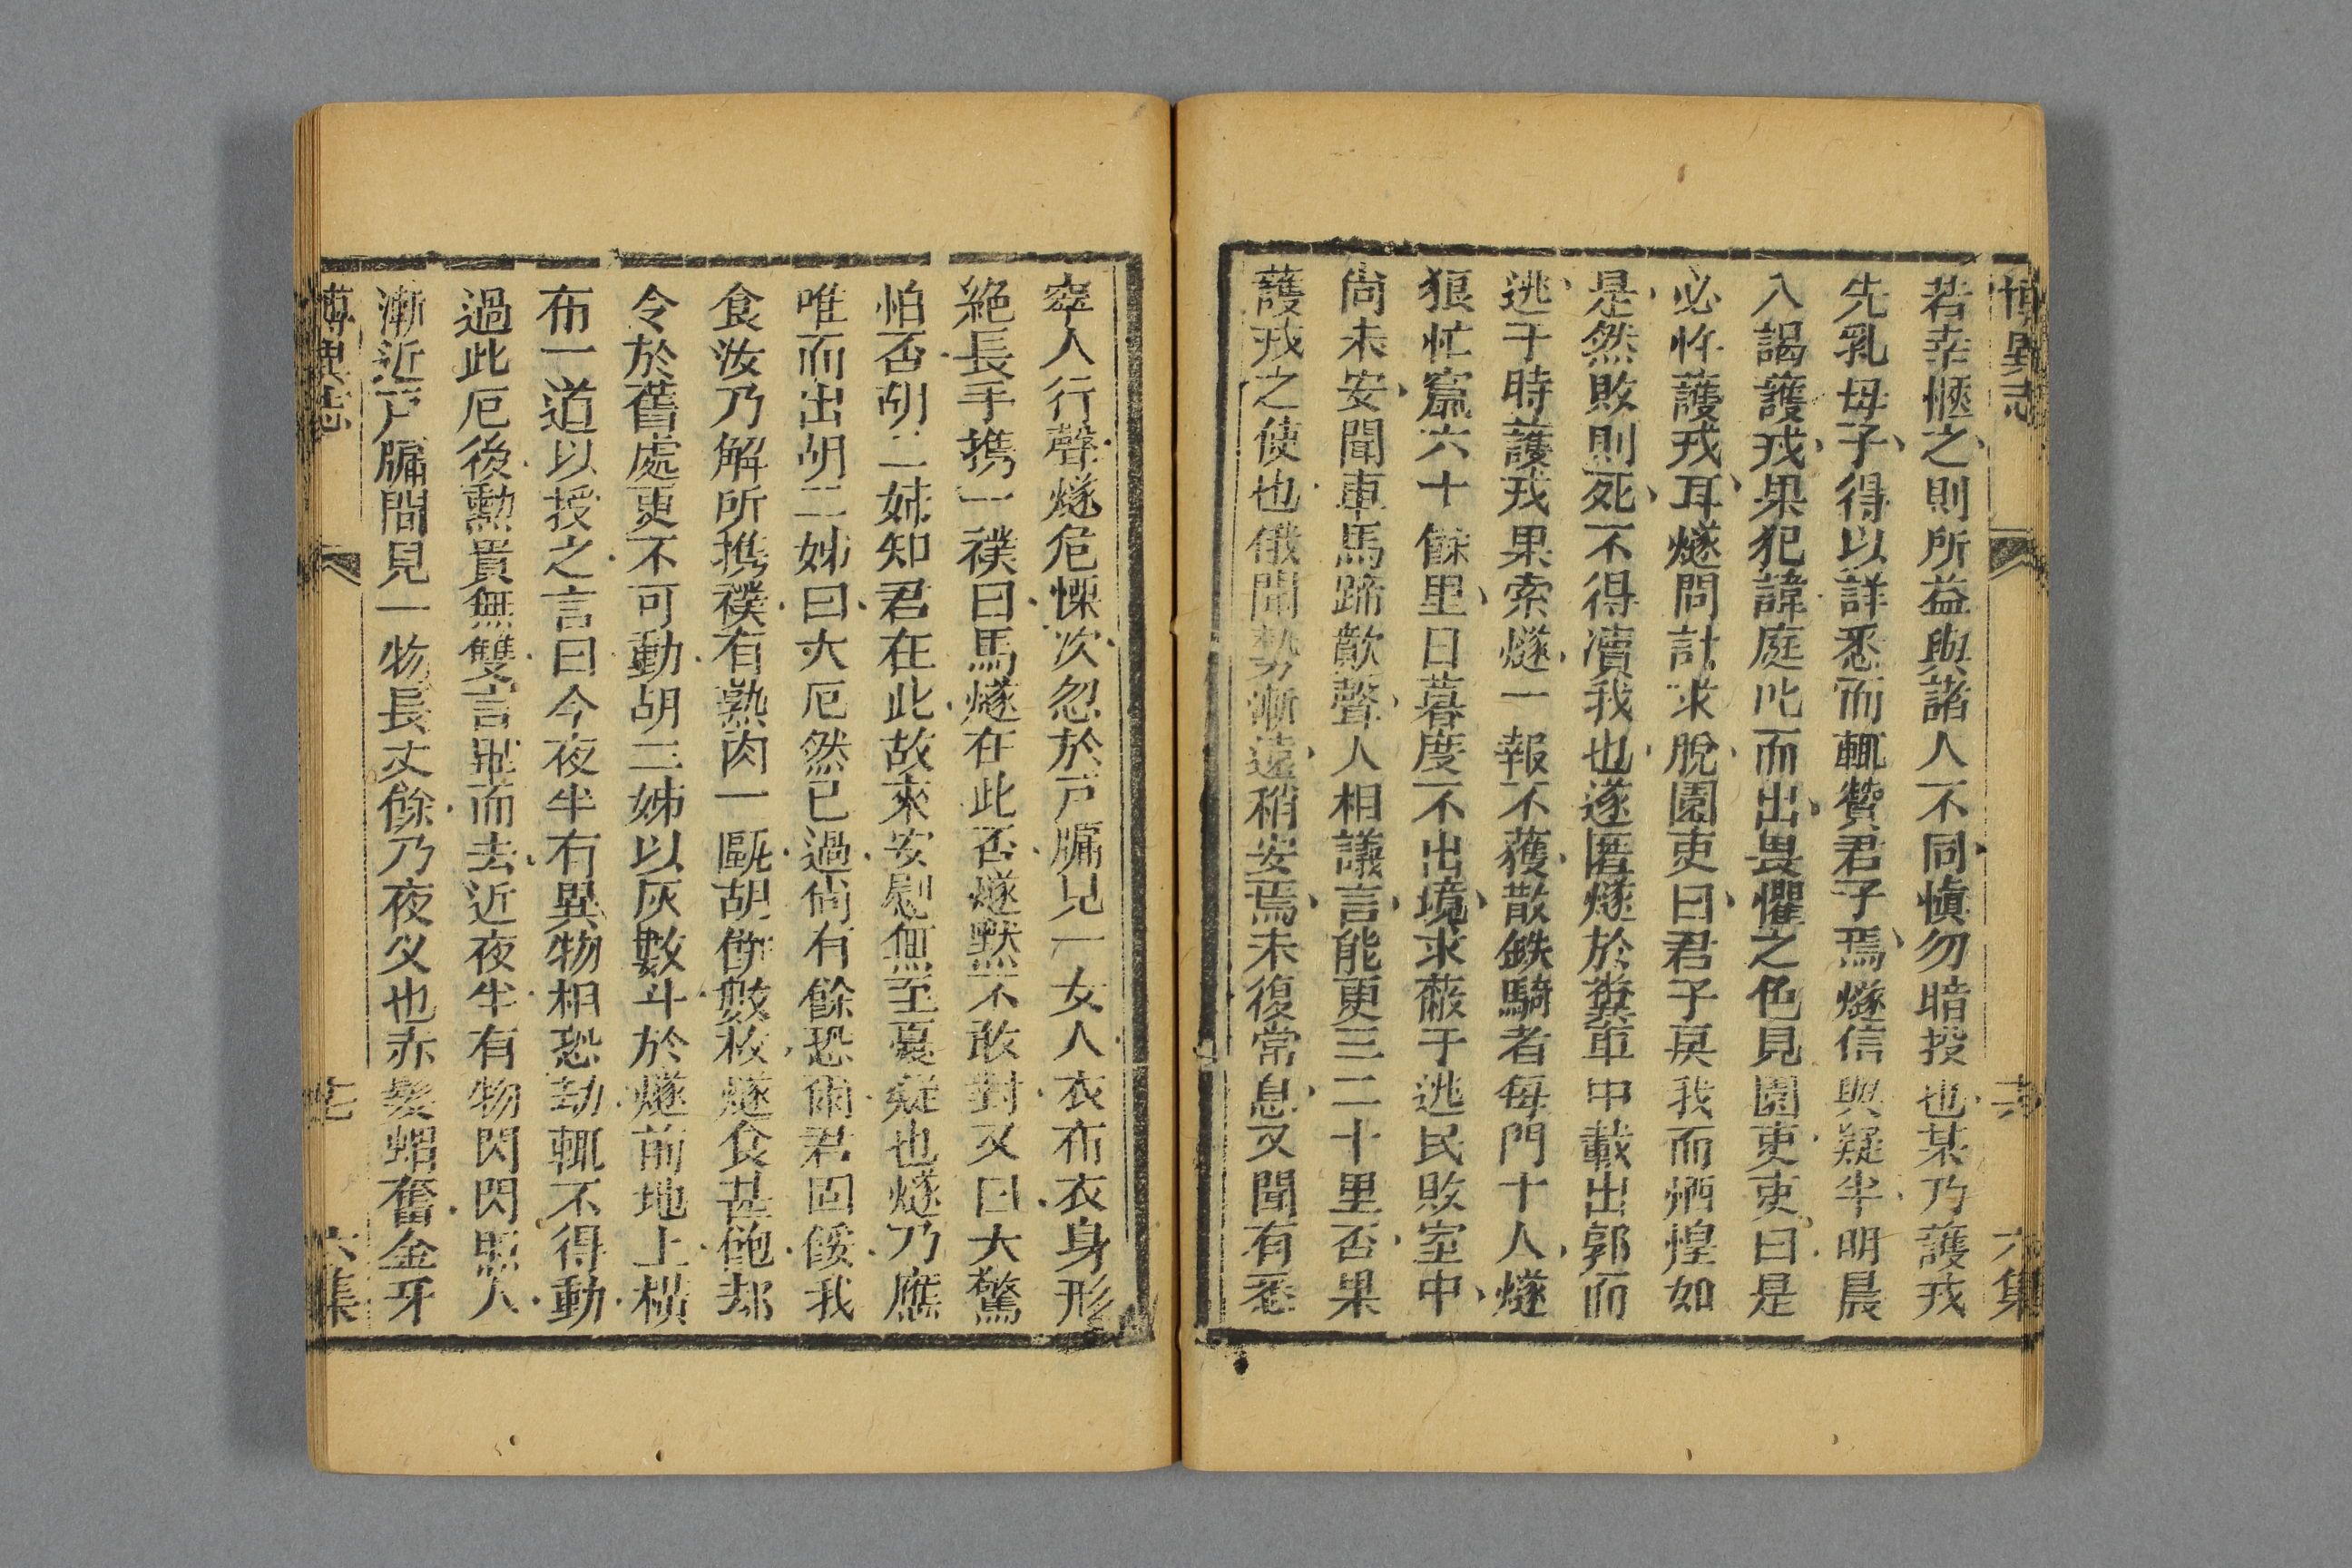 博異志 六集
若幸愜之則所益與諸人不同愼勿暗投也某乃護戎
先乳母子得以詳悉而輒贊君子焉燧信與疑半明晨
入謁護戎果犯諱庭叱而出畏懼之色見園吏吏曰是
必忤護戎耳燧問計求脫園吏曰君子戾我而恓惶如
是然敗則死不得凟我也遂匿燧於糞車中載出郭而
逃于時護戎果索燧一報不獲散鉄騎者每門十人燧
狼忙竄六十餘里日暮度不出境求蔽于逃民敗室中
尙未安聞車馬蹄歕聲人相議言能更三二十里否果
護戎之使也俄聞勢漸遠稍安焉未復常息又聞有悉
窣人行聲燧危慄次忽於戸牖見一女人衣布衣身形
絶長手携一襆曰馬燧在此否燧默不敢對又曰大驚
怕否胡二姊知君在此故來安慰無至憂疑也燧乃應
唯而出胡二姊曰大厄然已過尙有餘恐尔君固餒我
食汝乃解所携襆有熟肉一甌胡餅數枚燧食甚飽却
令於舊處更不可動胡二姊以灰數斗於燧前地上横
布一道以授之言曰今夜半有異物相恐劫輒不得動
過此厄後勳貴無雙言畢而去近夜半有物閃閃照人
漸近戸牖間見一物長丈餘乃夜叉也赤髮蝟奮金牙
博異志 六集